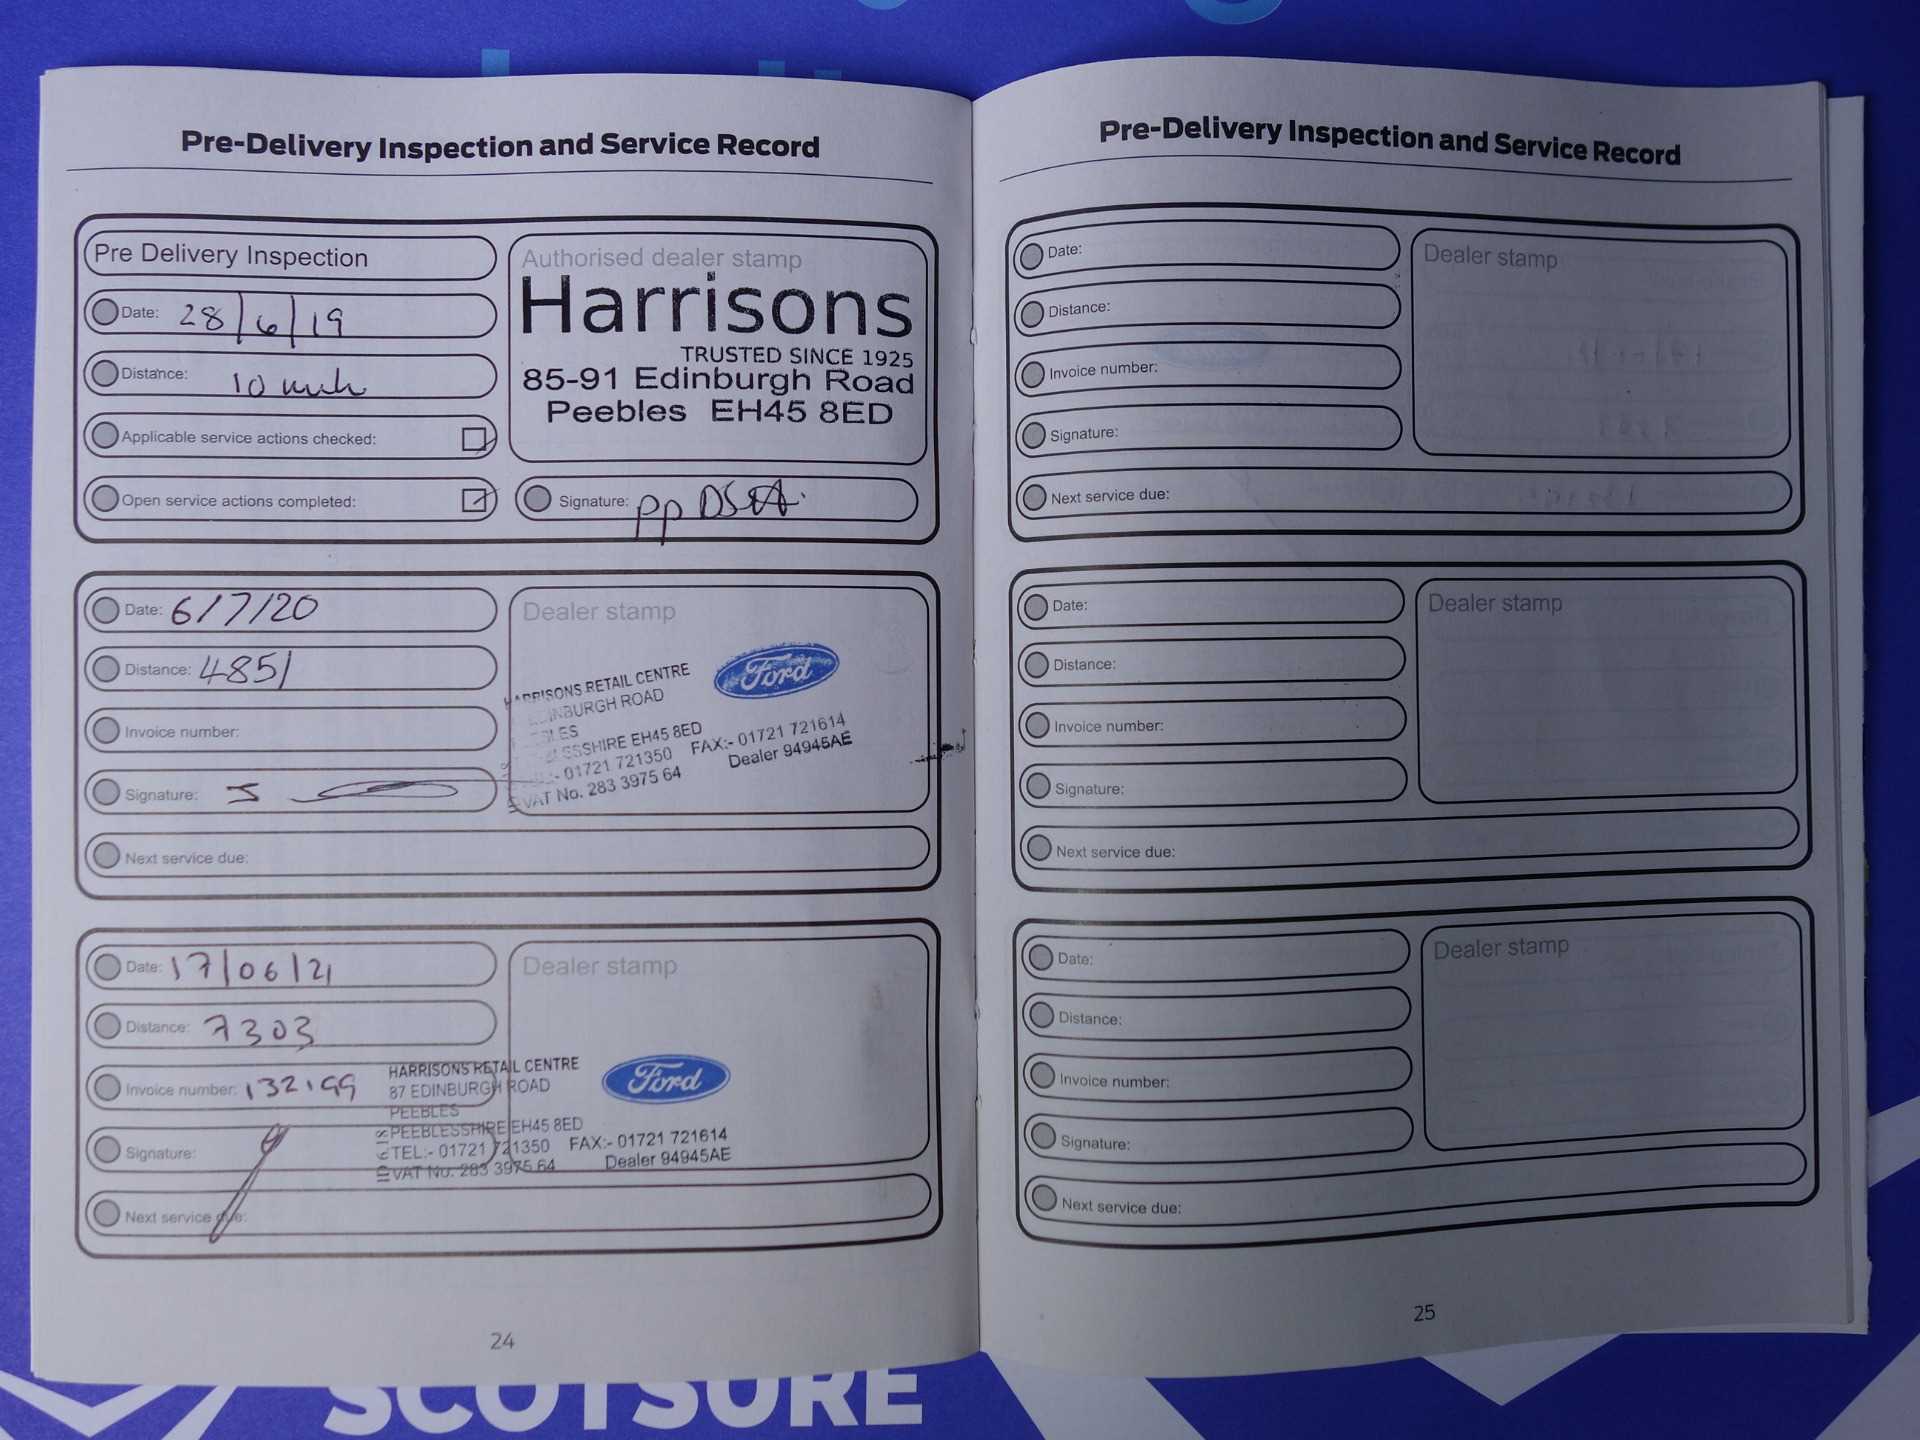 Pre-Delivery Inspection and Service Record
Pre Delivery Inspection
Date: 28/6/19
Distance: 10
Applicable service actions checked:
Open service actions completed:
Authorised dealer stamp
Harrisons
TRUSTED SINCE 1925
85-91 Edinburgh Road
Peebles EH45 8ED
Signature: pp
Date: 6/7/20
Distance: 4851
Invoice number:
Signature:
Next service due:
Dealer stamp
Ford
HARRISONS RETAIL CENTRE
EDINBURGH ROAD
EH45 8ED
01721 721350 FAX:- 01721 721614
VAT No. 283 3975 64 Dealer 94945AE
Date: 17/06/21
Distance: 7303
Invoice number: 132199
Signature:
Next service due:
Dealer stamp
Ford
HARRISONS RETAIL CENTRE
87 EDINBURGH ROAD
PEEBLES
PEEBLESSHIRE EH45 8ED
TEL:- 01721 721350 FAX:- 01721 721614
VAT No. 283 3975 64 Dealer 94945AE
24
Pre-Delivery Inspection and Service Record
Date:
Distance:
Invoice number:
Signature:
Next service due:
Dealer stamp
Date:
Distance:
Invoice number:
Signature:
Next service due:
Dealer stamp
Date:
Distance:
Invoice number:
Signature:
Next service due:
Dealer stamp
25
SCOTSURE